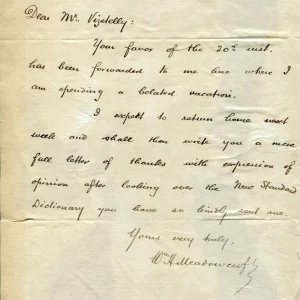 Dear Mr. Vizetelly:
Your favor of the 20th inst.
has been forwarded to me here where I
am spending a belated vacation.
I expect to return home next
week and shall then write you a more
full letter of thanks with expression of
opinion after looking over the New Standard
Dictionary you have so kindly sent me.
Yours very truly,
Wm H. Meadowcroft